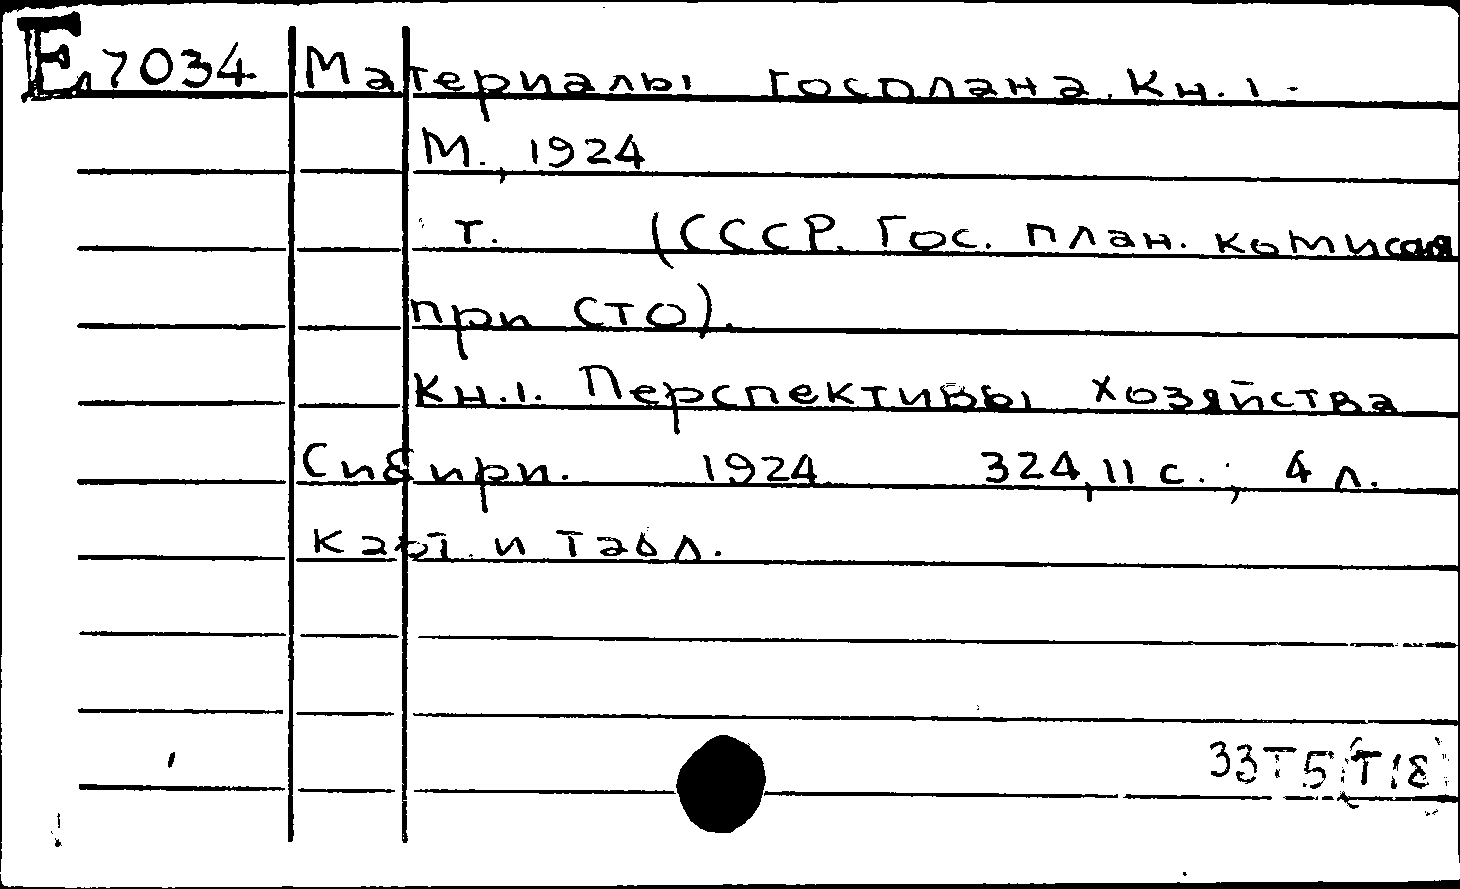 E 7034 Материалы Госплана. Кн. 1.
М., 1924
т. (СССР. Гос. план. комиссия
при СТО).
Кн. 1. Перспективы хозяйства
Сибири. 1924 324, 11 с.; 4 л.
карт. и табл.
33Т5(Т18)